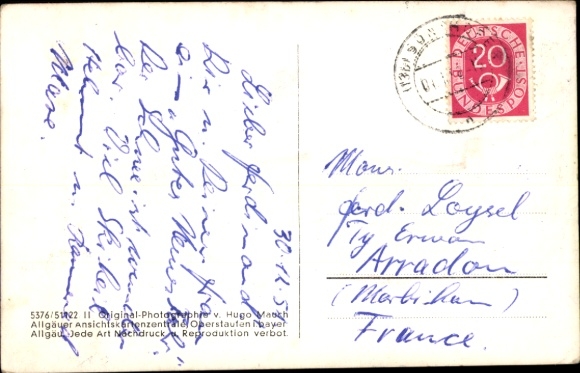 30.12.51
Lieber Ferdinand!
Dir u. Deiner Frau
ein "Gutes Neues Jahr".
Der Schnee ist wunder-
bar. Viel Skiheil
Helmut u.
Mons.
Ferd. Loysel
Ty Erwan
Arradon
(Morbihan)
France.
DEUTSCHE
20
BUNDESPOST
(13b)
5376/51/22 II Original-Photographie v. Hugo Mauch
Allgäuer Ansichtskartenzentrale, Oberstaufen i. bayer
Allgäu. Jede Art Nachdruck u. Reproduktion verbot.